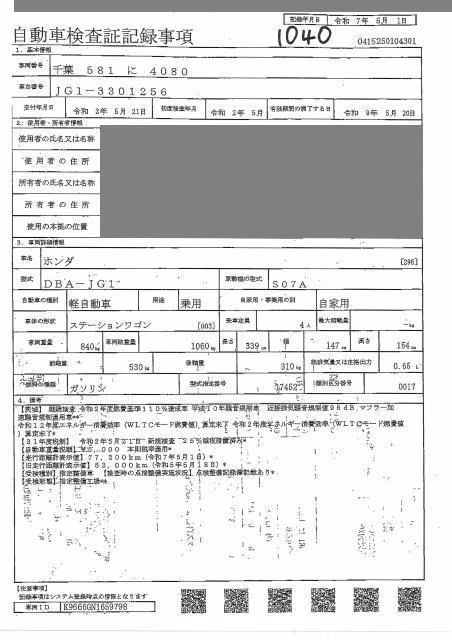 記録年月日 令和 7年 5月 1日
自動車検査証記録事項
1040
0415250104301
1. 基本情報
車両番号 千葉 581 に 4080
車台番号 JG1-3301256
交付年月日 令和 2年 5月 21日 初度検査年月 令和 2年 5月 有効期間の満了する日 令和 9年 5月 20日
2. 使用者・所有者情報
使用者の氏名又は名称
使用者の住所
所有者の氏名又は名称
所有者の住所
使用の本拠の位置
3. 車両詳細情報
車名 ホンダ [296]
型式 DBA-JG1 原動機の型式 S07A
自動車の種別 軽自動車 用途 乗用 自家用・事業用の別 自家用
車体の形状 ステーションワゴン [003] 乗車定員 4人 最大積載量 -kg
車両重量 840kg 車両総重量 1060kg 長さ 339cm 幅 147cm 高さ 154cm
前軸重 530kg 後軸重 310kg 総排気量又は定格出力 0.65L
燃料の種類 ガソリン 型式指定番号 17452 類別区分番号 0017
4. 備考
【茨城】 継続検査,令和2年度燃費基準110%達成車 平成10年騒音規制車 近接排気騒音規制値96dB,マフラー加
速騒音規制適用車*
令和12年度エネルギー消費効率(WLTCモード燃費値)算定未了 令和2年度エネルギー消費効率(WLTCモード燃費値
)算定未了*
【31年度税制】 令和2年5月21日 新規検査 25%
【自動車重量税額】 本則税率適用*
【走行距離計表示値】77,200km(令和7年5月1日)
【旧走行距離計表示値】53,000km(令和5年5月18日)*
【受検種別】指定整備車 【検査時の点検整備実施状況】点検整備記録簿記載あり*
【受検形態】指定整備工場*
【注意事項】
記録事項はシステム登録時点の情報となります
車両ID K9666GN1659798